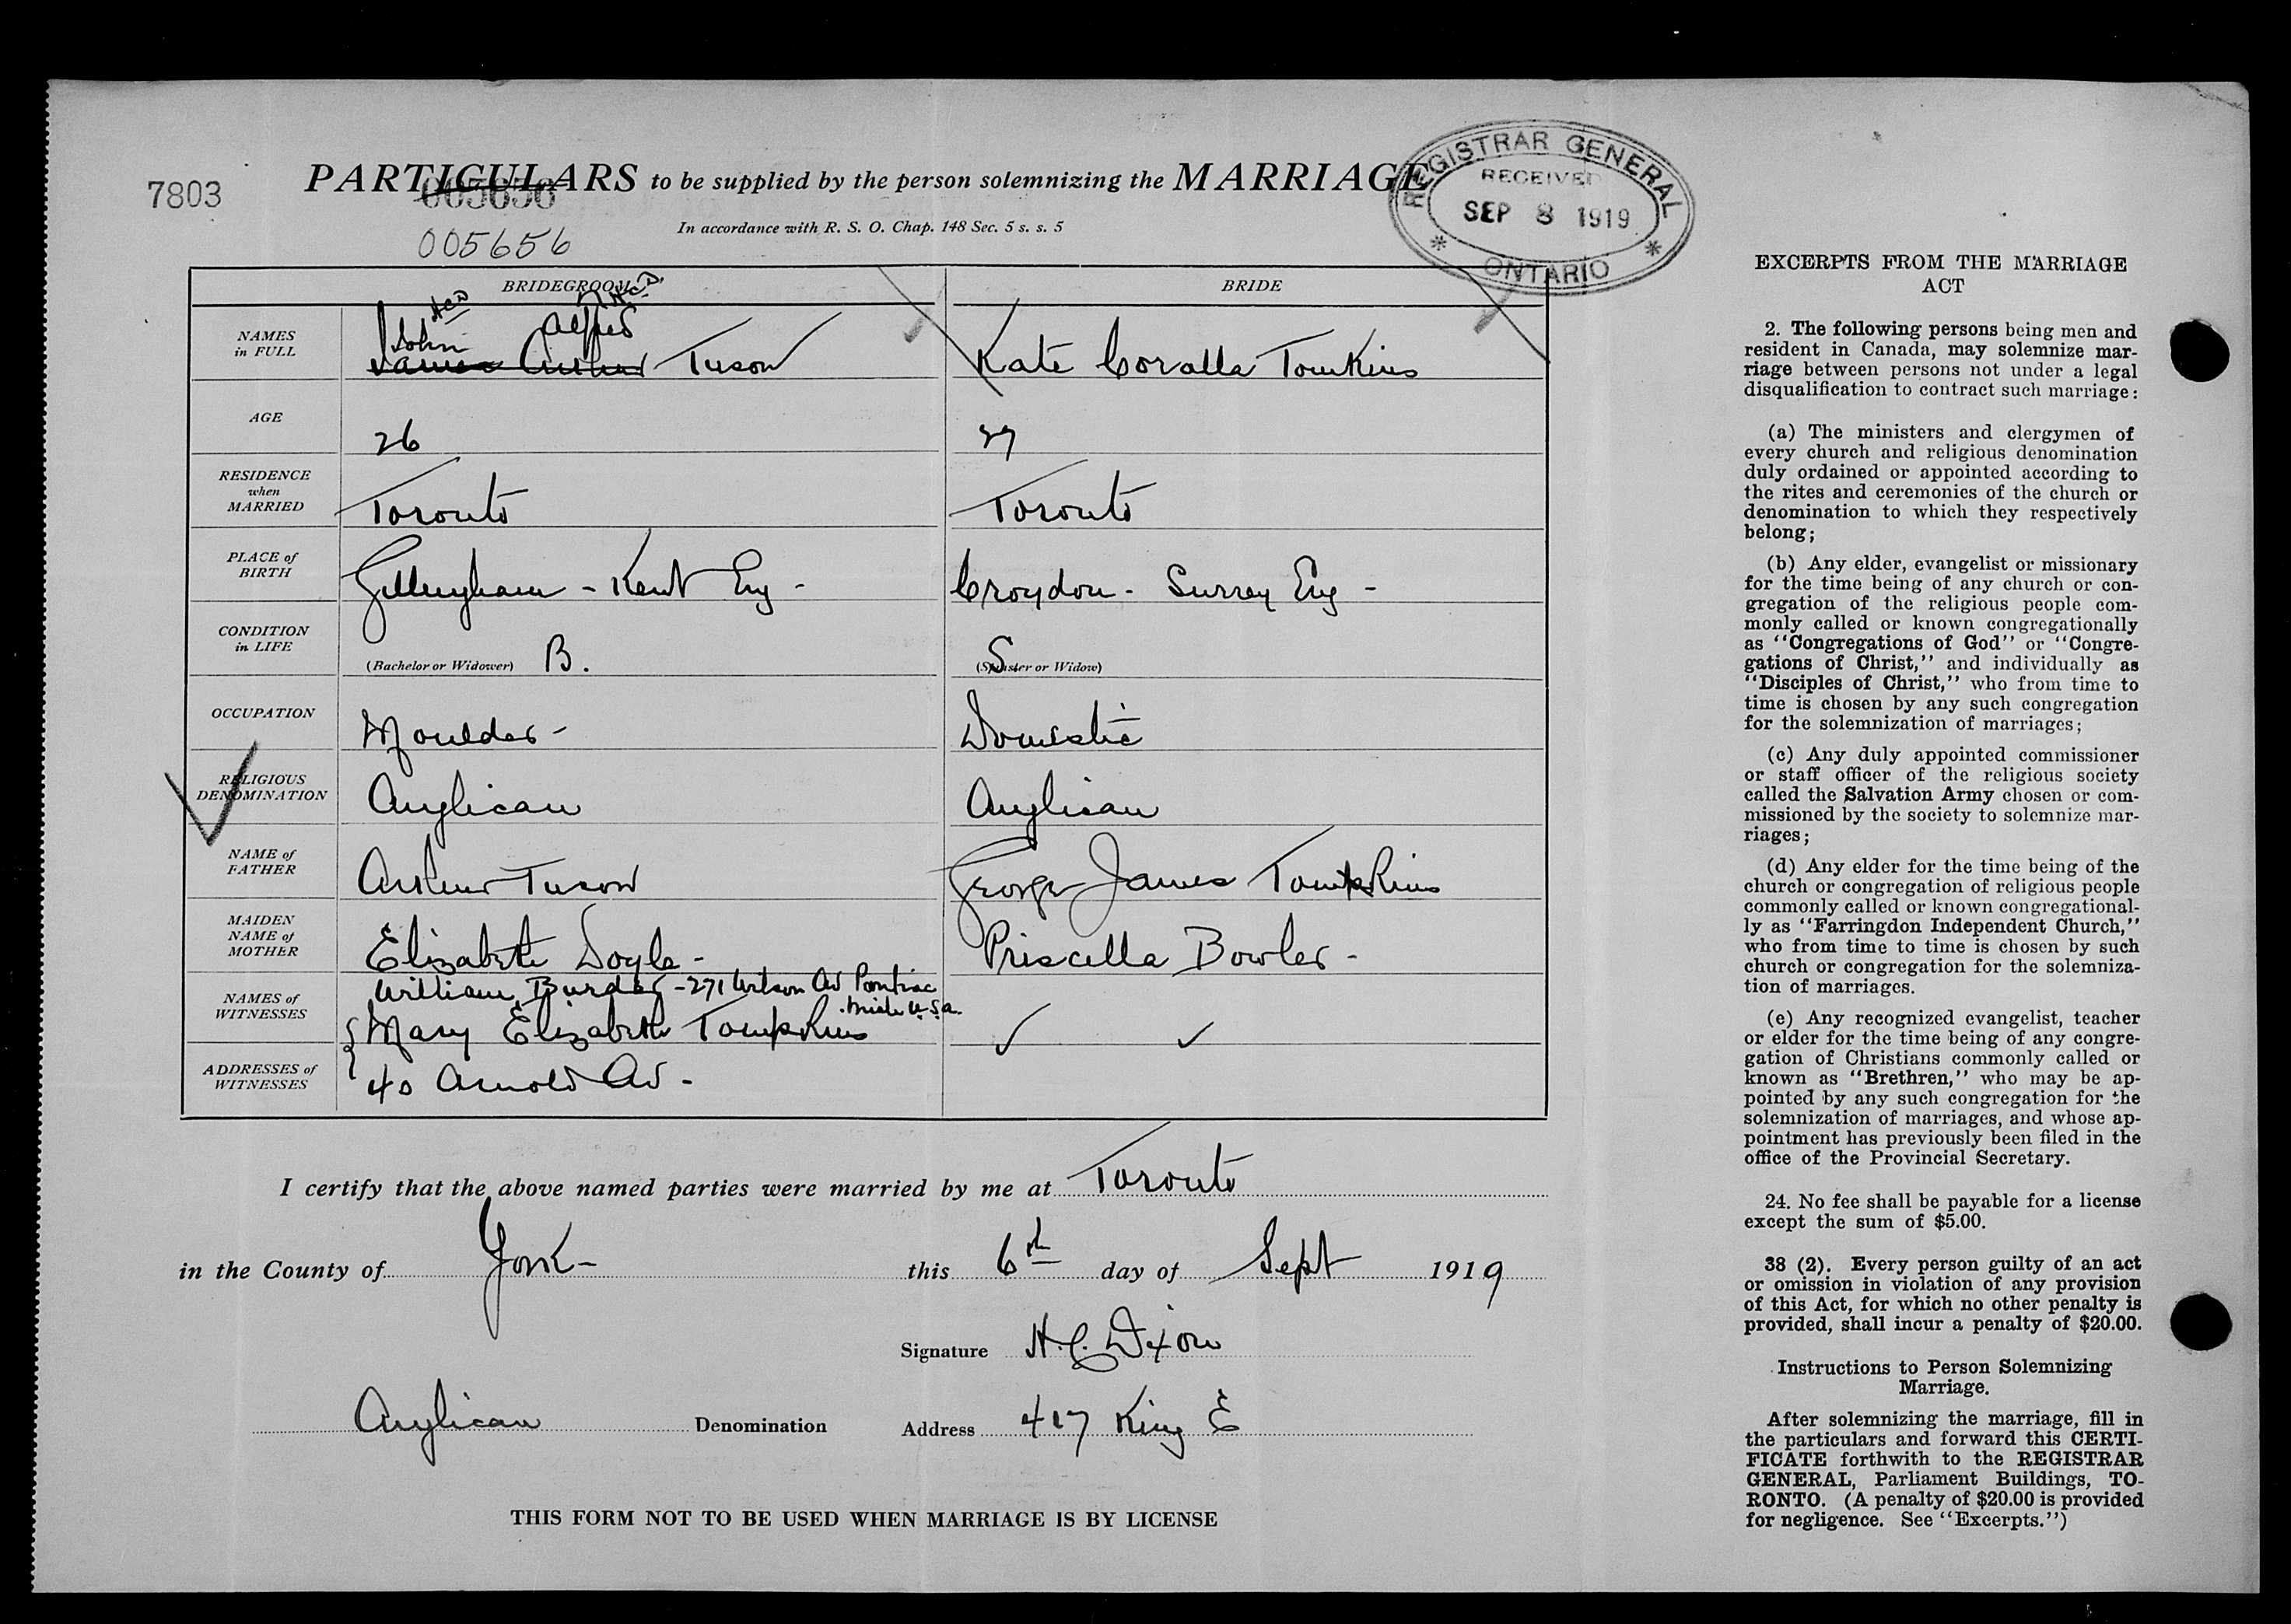 7803
PARTICULARS to be supplied by the person solemnizing the MARRIAGE
005656
In accordance with R. S. O. Chap. 148 Sec. 5 s. s. 5
005656
REGISTRAR GENERAL
RECEIVED
SEP 8 1919
ONTARIO
BRIDEGROOM
BRIDE
NAMES
in FULL
H.C.D H.C.D.
John Alfred
James Arthur Tuson
Kate Coralla Tomkins
AGE
26
27
RESIDENCE
when
MARRIED
Toronto
Toronto
PLACE of
BIRTH
Gillingham - Kent Eng -
Croydon - Surrey Eng -
CONDITION
in LIFE
(Bachelor or Widower) B.
(Spinster or Widow) S
OCCUPATION
Moulder -
Domestic
RELIGIOUS
DENOMINATION
Anglican
Anglican
NAME of
FATHER
Arthur Tuson
George James Tompkins
MAIDEN
NAME of
MOTHER
Elizabeth Doyle -
Priscilla Bowler -
NAMES of
WITNESSES
William Burder - 271 Wilson Av Pontiac
Mich U.S.A.
Mary Elizabeth Tompkins
ADDRESSES of
WITNESSES
40 Arnold Av -
I certify that the above named parties were married by me at Toronto
in the County of York - this 6th day of Sept 1919
Signature H.C. Dixon
Anglican Denomination Address 417 King E
THIS FORM NOT TO BE USED WHEN MARRIAGE IS BY LICENSE
EXCERPTS FROM THE MARRIAGE
ACT
2. The following persons being men and
resident in Canada, may solemnize mar-
riage between persons not under a legal
disqualification to contract such marriage:
(a) The ministers and clergymen of
every church and religious denomination
duly ordained or appointed according to
the rites and ceremonies of the church or
denomination to which they respectively
belong;
(b) Any elder, evangelist or missionary
for the time being of any church or con-
gregation of the religious people com-
monly called or known congregationally
as "Congregations of God" or "Congre-
gations of Christ," and individually as
"Disciples of Christ," who from time to
time is chosen by any such congregation
for the solemnization of marriages;
(c) Any duly appointed commissioner
or staff officer of the religious society
called the Salvation Army chosen or com-
missioned by the society to solemnize mar-
riages;
(d) Any elder for the time being of the
church or congregation of religious people
commonly called or known congregational-
ly as "Farringdon Independent Church,"
who from time to time is chosen by such
church or congregation for the solemniza-
tion of marriages.
(e) Any recognized evangelist, teacher
or elder for the time being of any congre-
gation of Christians commonly called or
known as "Brethren," who may be ap-
pointed by any such congregation for the
solemnization of marriages, and whose ap-
pointment has previously been filed in the
office of the Provincial Secretary.
24. No fee shall be payable for a license
except the sum of $5.00.
38 (2). Every person guilty of an act
or omission in violation of any provision
of this Act, for which no other penalty is
provided, shall incur a penalty of $20.00.
Instructions to Person Solemnizing
Marriage.
After solemnizing the marriage, fill in
the particulars and forward this CERTI-
FICATE forthwith to the REGISTRAR
GENERAL, Parliament Buildings, TO-
RONTO. (A penalty of $20.00 is provided
for negligence. See "Excerpts.")